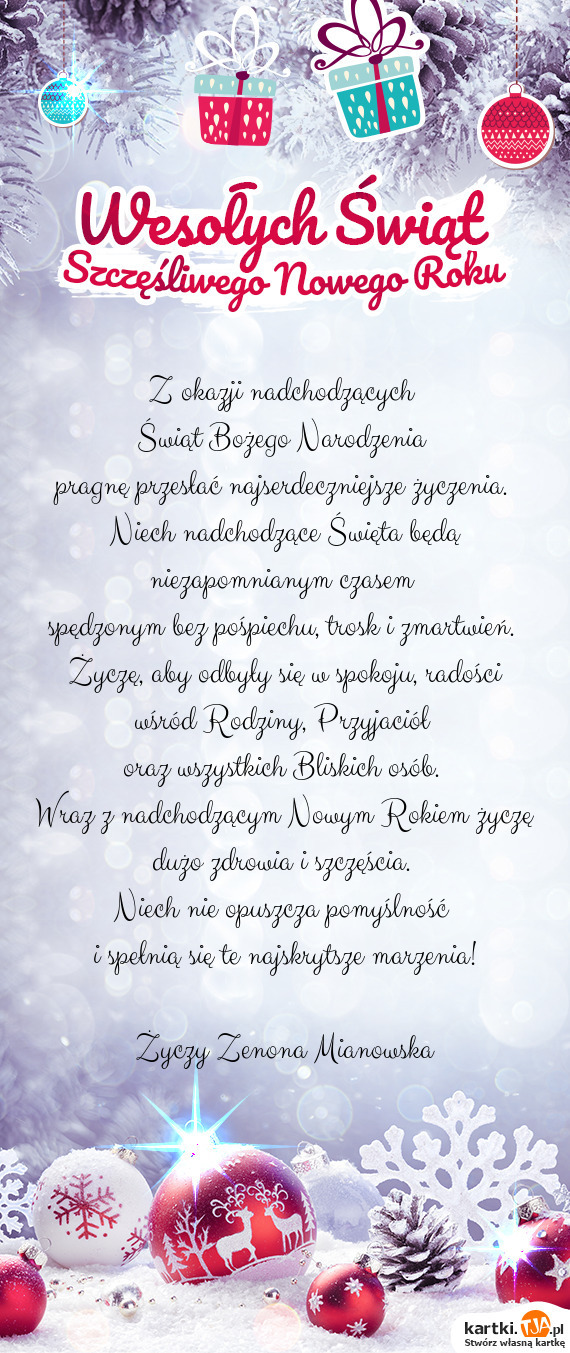 Wesołych Świąt
Szczęśliwego Nowego Roku
Z okazji nadchodzących
Świąt Bożego Narodzenia
pragnę przesłać najserdeczniejsze życzenia.
Niech nadchodzące Święta będą
niezapomnianym czasem
spędzonym bez pośpiechu, trosk i zmartwień.
Życzę, aby odbyły się w spokoju, radości
wśród Rodziny, Przyjaciół
oraz wszystkich Bliskich osób.
Wraz z nadchodzącym Nowym Rokiem życzę
dużo zdrowia i szczęścia.
Niech nie opuszcza pomyślność
i spełnią się te najskrytsze marzenia!
Życzy Zenona Mianowska
kartki.TJA.pl
Stwórz własną kartkę